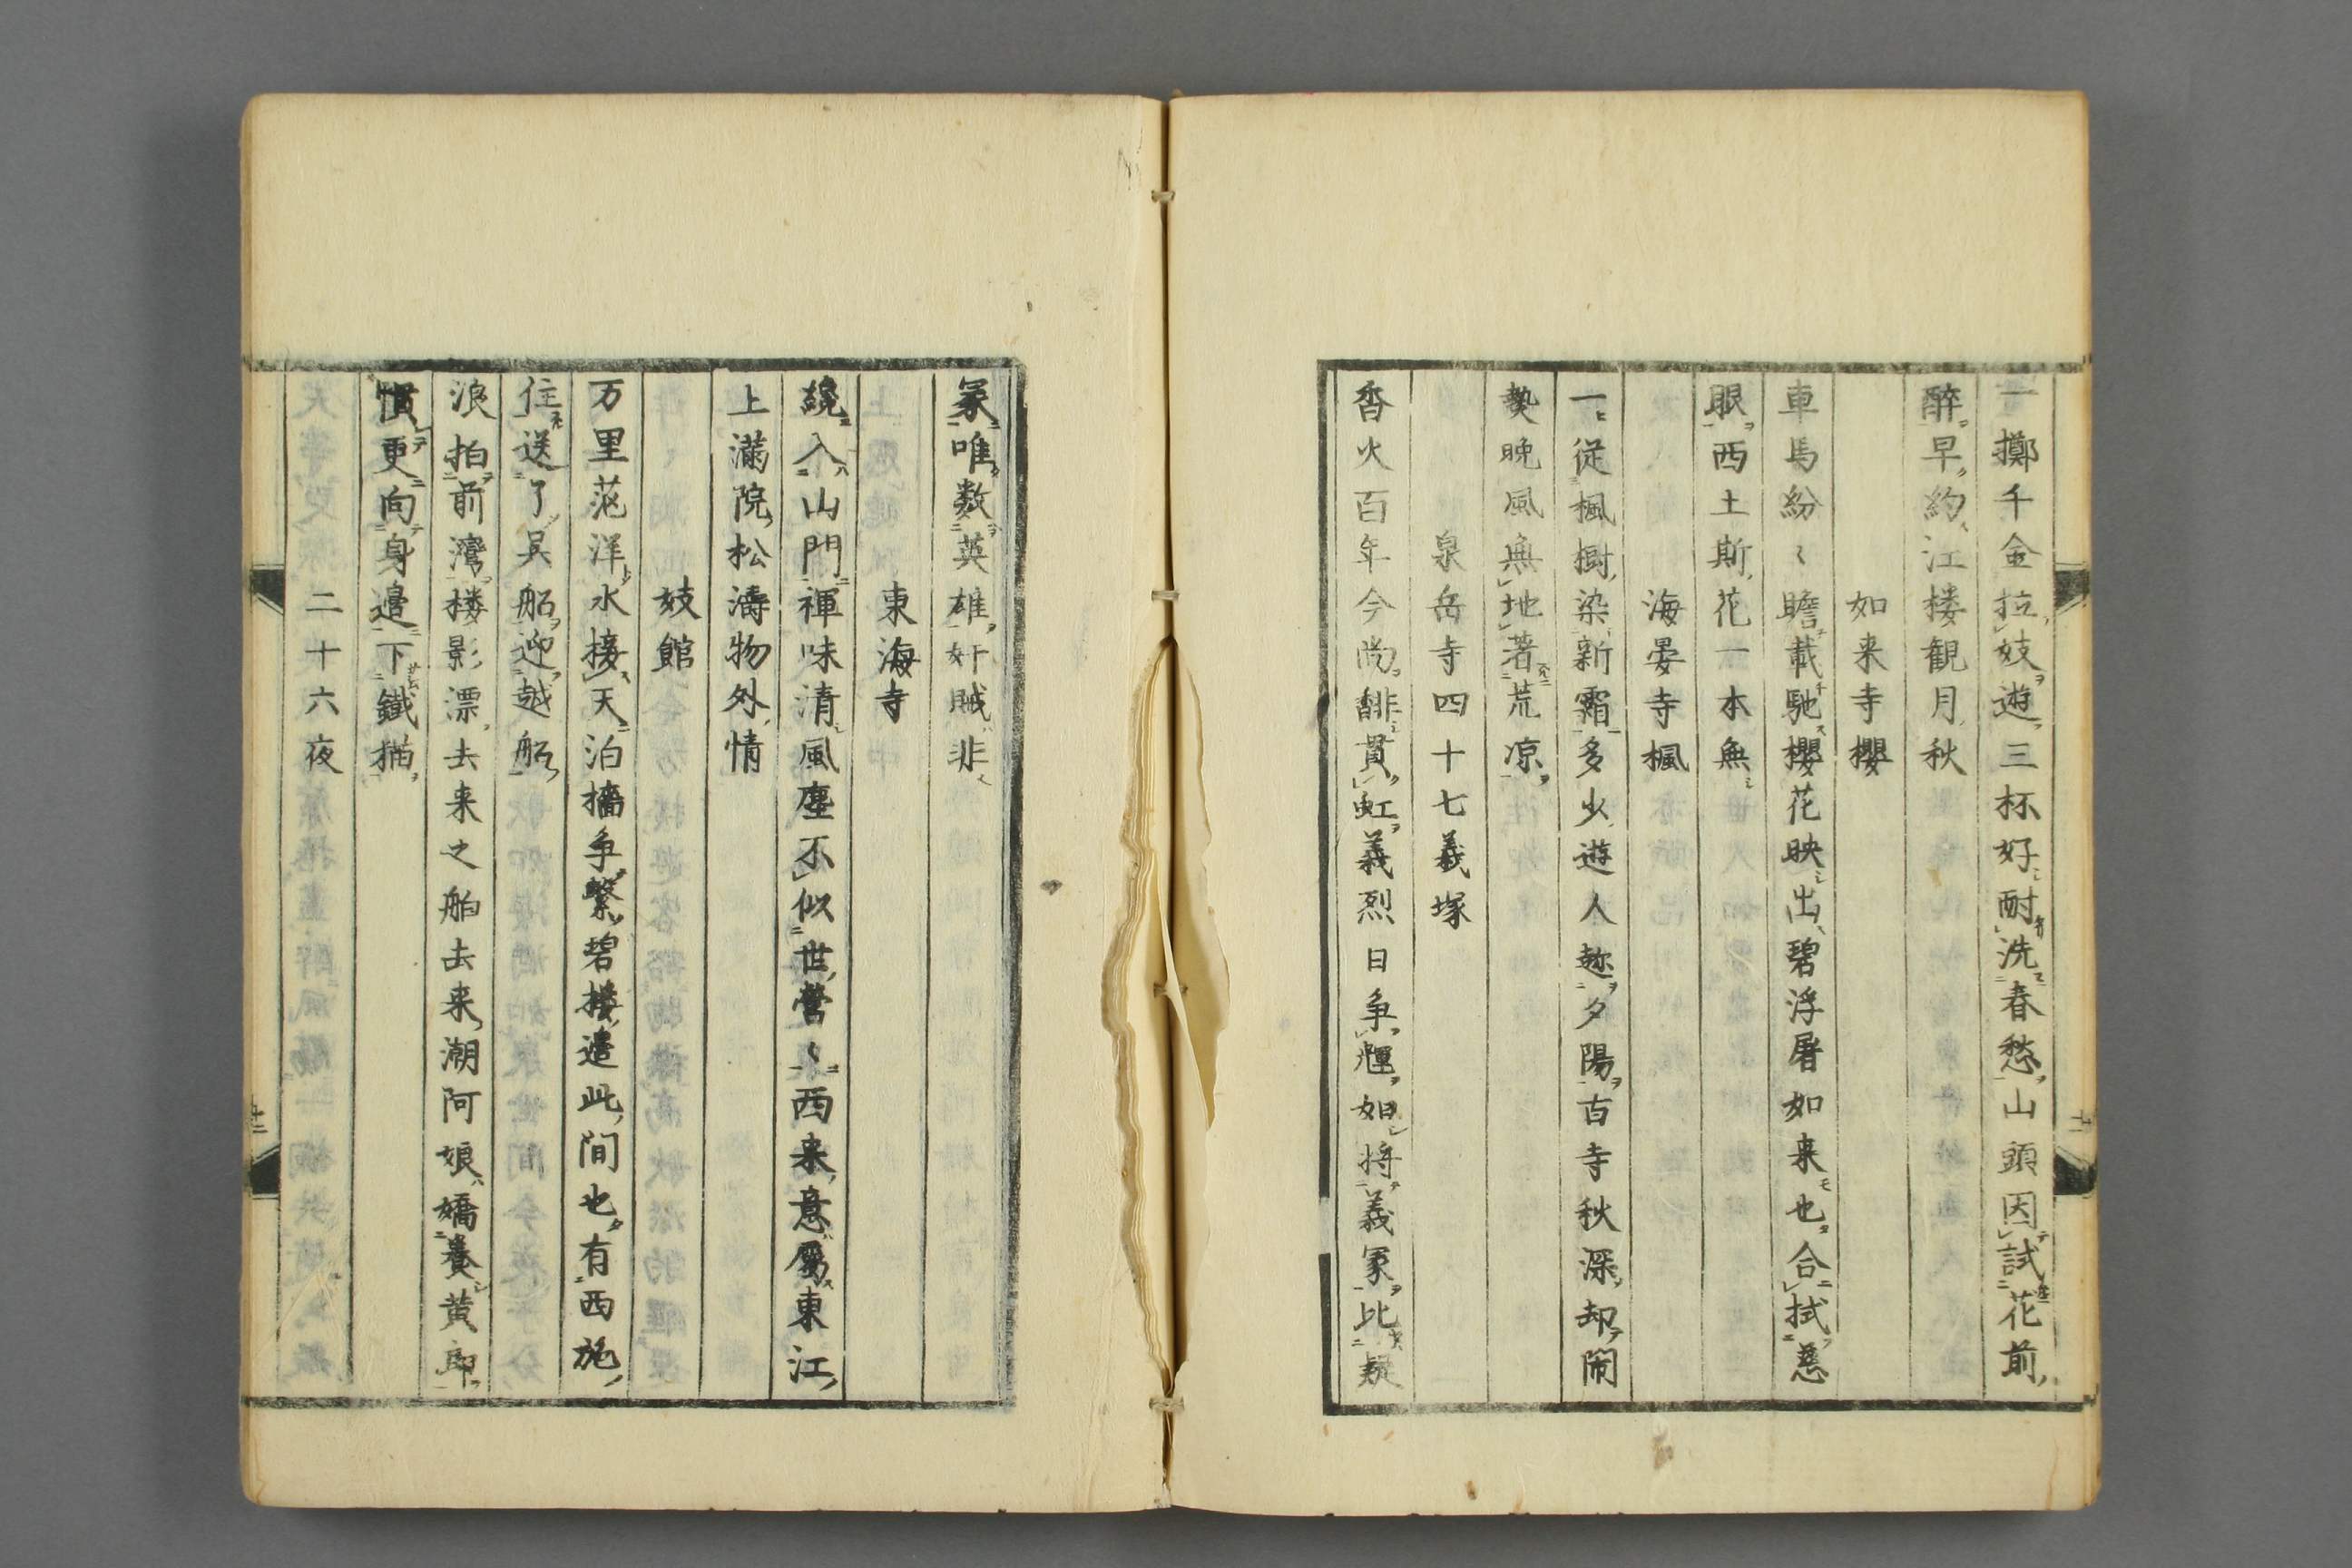 一擲千金拉妓遊三杯好酎洗春愁山頭因試花前
醉早約江楼観月秋
如来寺櫻
車馬紛〻瞻載馳櫻花映出碧浮屠如来也合拭慈
眼西土斯花一本無
海晏寺楓
一従楓樹染新霜多少遊人趂夕陽古寺秋深却閙
𤍠晩風無地著荒凉
泉岳寺四十七義塚
香火百年今尚馡貫虹義烈日争輝如将義冢比疑
冢唯数英雄奸賊非
東海寺
纔入山門禅味清風塵不似世営〻西来意属東江
上満院松濤物外情
妓館
万里茫洋水接天泊檣争繫碧楼邉此間也有西施
住送了呉船迎越船
浪拍前湾楼影漂去来之舶去来潮阿娘嬌養黄郎
慣更向身邉下鐵猫
二十六夜
十一
十二